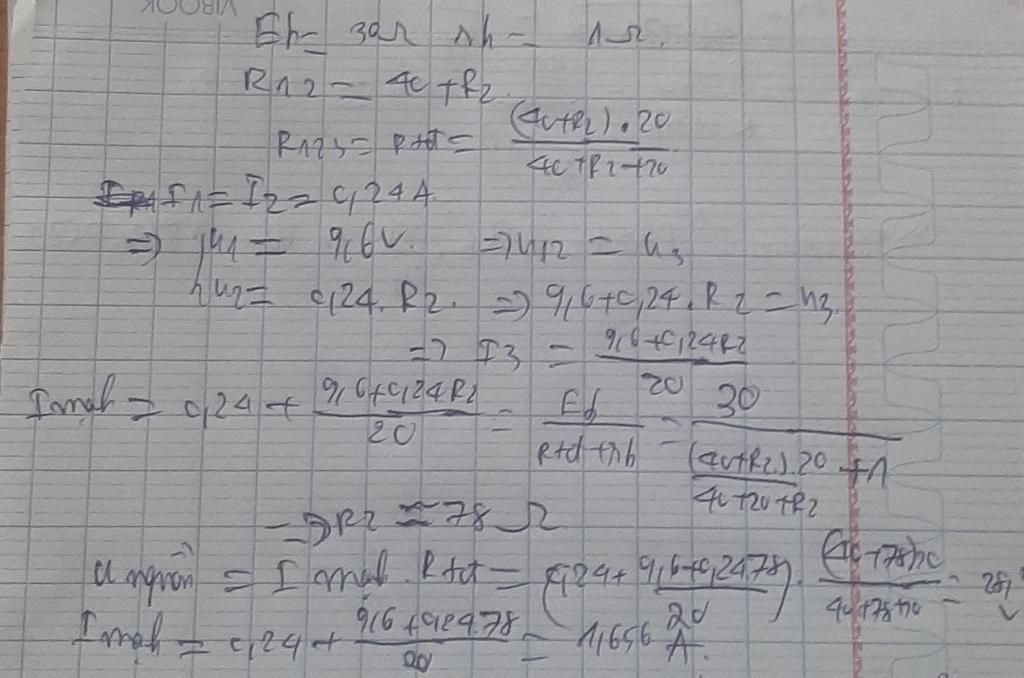 VIBOOK
Eb= 30Ω rb = 1Ω.
R12 = 40+R2.
R123 = Rtđ = (40+R2).20 / 40+R2+20
I1 = I2 = 0,24A.
=> u1 = 9,6V. => u12 = u3
u2 = 0,24.R2. => 9,6+0,24.R2 = u3.
=> I3 = 9,6+0,24R2 / 20
Imạch = 0,24 + 9,6+0,24R2 / 20 = Eb / Rtđ+rb = 30 / (40+R2).20 / 40+20+R2 + 1
=> R2 = 78Ω
U nguồn = I mạch. Rtđ = (0,24 + 9,6+0,24.78 / 20). (40+78)20 / 40+78+20 = 28, V
I mạch = 0,24 + 9,6+0,24.78 / 20 = 1,656 A.